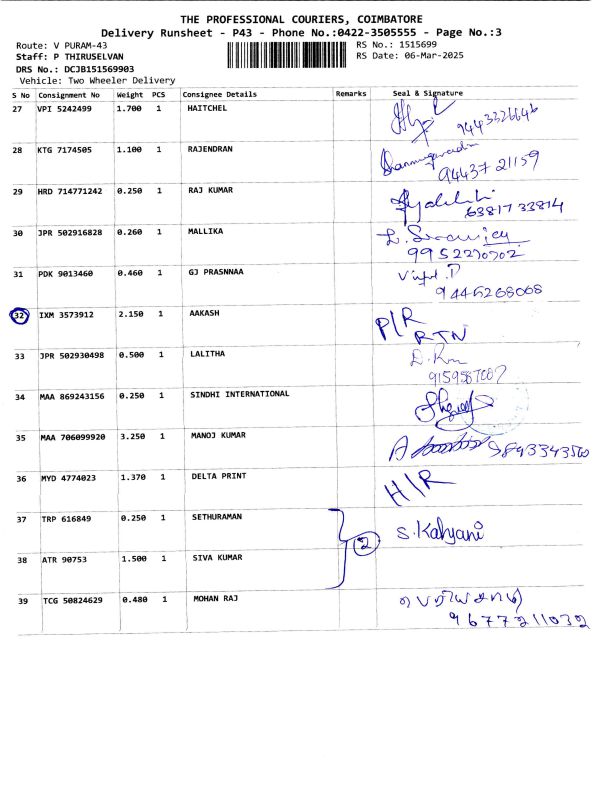 THE PROFESSIONAL COURIERS, COIMBATORE
Delivery Runsheet - P43 - Phone No.:0422-3505555 - Page No.:3
Route: V PURAM-43 RS No.: 1515699
Staff: P THIRUSELVAN RS Date: 06-Mar-2025
DRS No.: DCJB151569903
Vehicle: Two Wheeler Delivery
S No Consignment No Weight PCS Consignee Details Remarks Seal & Signature
27 VPI 5242499 1.700 1 HAITCHEL
9443326646
28 KTG 7174505 1.100 1 RAJENDRAN
94437 21159
29 HRD 714771242 0.250 1 RAJ KUMAR
63817 33814
30 JPR 502916828 0.260 1 MALLIKA
9952270702
31 PDK 9013460 0.460 1 GJ PRASNNAA
32 IXM 3573912 2.150 1 AAKASH P/R
RTN
33 JPR 502930498 0.500 1 LALITHA
34 MAA 869243156 0.250 1 SINDHI INTERNATIONAL
35 MAA 706099920 3.250 1 MANOJ KUMAR
36 MYD 4774023 1.370 1 DELTA PRINT H/R
37 TRP 616849 0.250 1 SETHURAMAN S. Kalyani
2
38 ATR 90753 1.500 1 SIVA KUMAR
39 TCG 50824629 0.480 1 MOHAN RAJ
9677211032